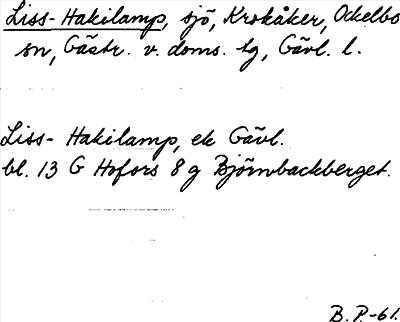 Liss-Hakilamp, sjö, Krokåker, Ockelbo
sn, Gästr. v. doms. tg, Gävl. l.
Liss-Hakilamp, ek Gävl.
bl. 13 G Hofors 8 g Björnbackberget.
B.P.-61.